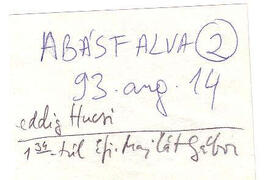 ABÁSFALVA 2
93. aug. 14
eddig Hucsi
1 34-től Efi. Majlát Gábor